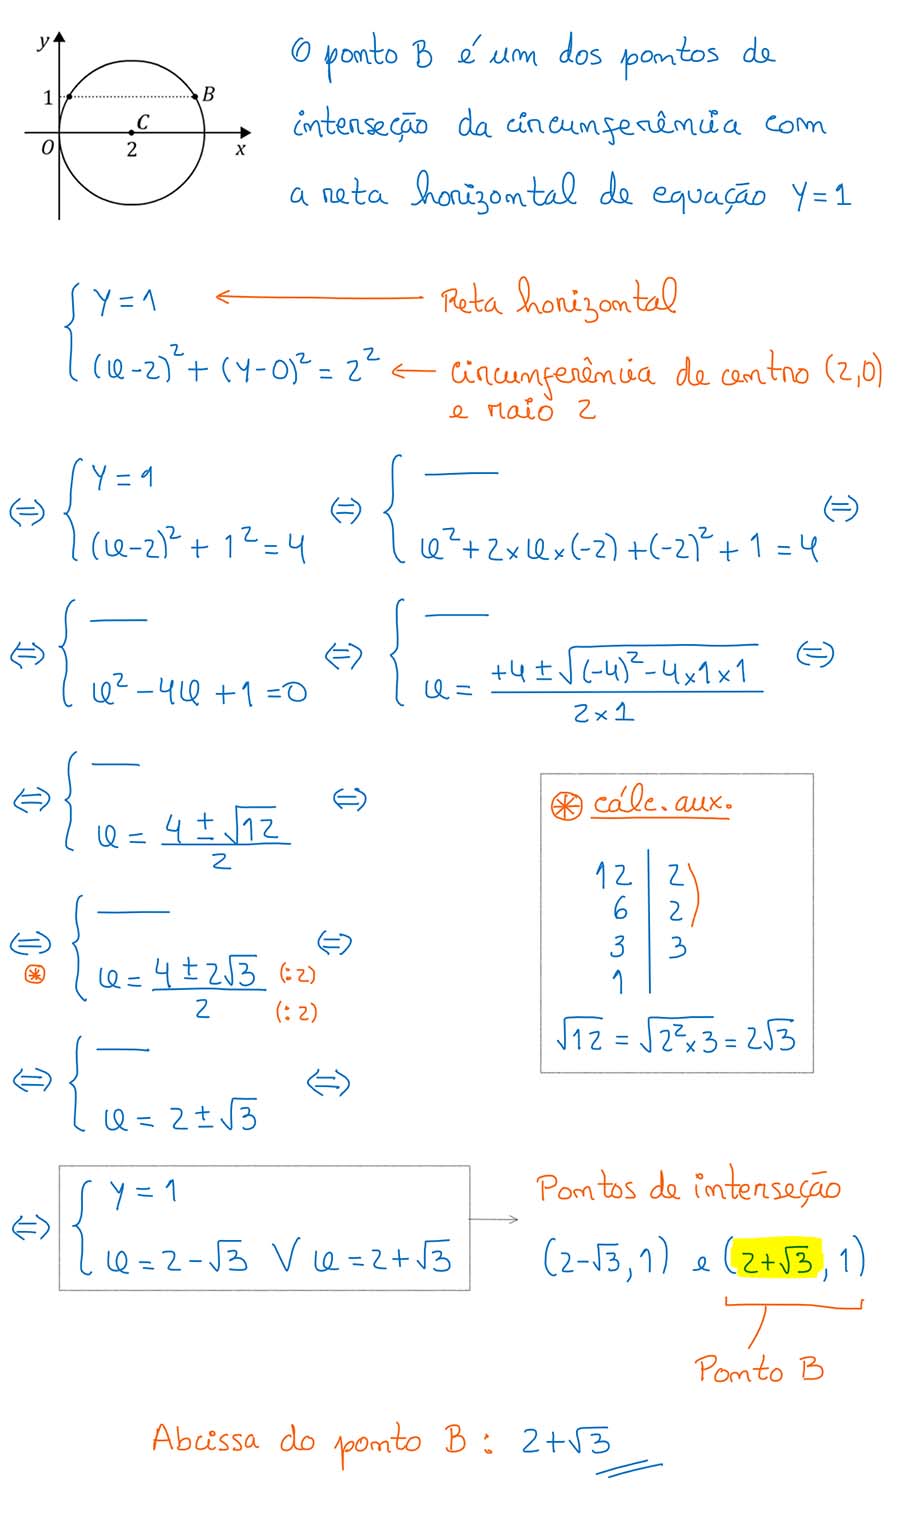 y
1
B
C
O
2
x
O ponto B é um dos pontos de
interseção da circunferência com
a reta horizontal de equação y=1
{ y=1 ← Reta horizontal
(x-2)² + (y-0)² = 2² ← circunferência de centro (2,0)
e raio 2
⇔ { y=1
(x-2)² + 1² = 4
⇔ { ―
x² + 2×x×(-2) + (-2)² + 1 = 4 ⇔
⇔ { ―
x² - 4x + 1 = 0
⇔ { ―
x = (+4 ± √((-4)² - 4×1×1)) / (2×1) ⇔
⇔ { ―
x = (4 ± √12) / 2 ⇔
⇔ { ―
⊛ x = (4 ± 2√3) / 2 (:2) (:2) ⇔
⇔ { ―
x = 2 ± √3 ⇔
⊛ cálc. aux.
12 | 2
6 | 2
3 | 3
1 |
√12 = √(2²×3) = 2√3
⇔ { y=1
x = 2-√3 ∨ x = 2+√3
Pontos de interseção
(2-√3, 1) e (2+√3, 1)
Ponto B
Abcissa do ponto B : 2+√3